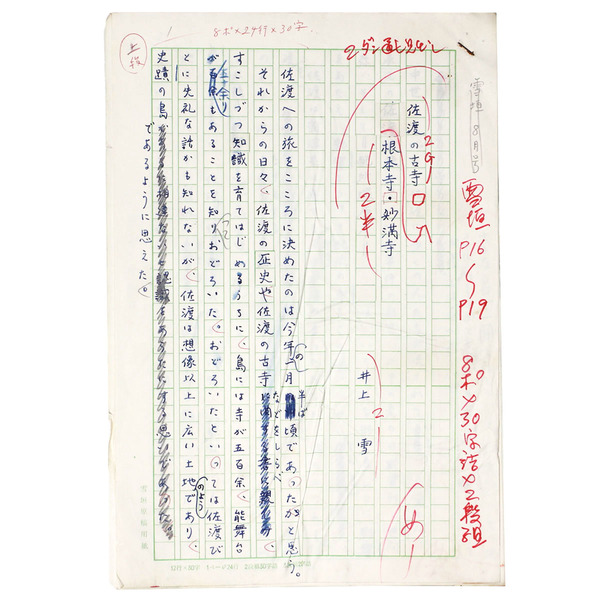 雪垣 8月号
雪垣
P16
〜
P19
8ポ×30字詰×2段組
2ダン通し見出し
佐渡の古寺
2G
根本寺・妙満寺
2半
井上 雪
め
8ポ×24行×30字
上段
佐渡への旅をこころに決めたのは今年の一月半ば頃であったかと思う。
それからの日々、佐渡の歴史や佐渡の古寺などをしらべ
すこしづつ知識を育てはじめるうちに、島には寺が五百余、能舞台
が五十余りもあることを知りおどろいた。おどろいたといっては佐渡び
とに失礼な話かも知れないが、佐渡は想像以上に広い土地であり、のよう
史蹟の島
であるように思えた。